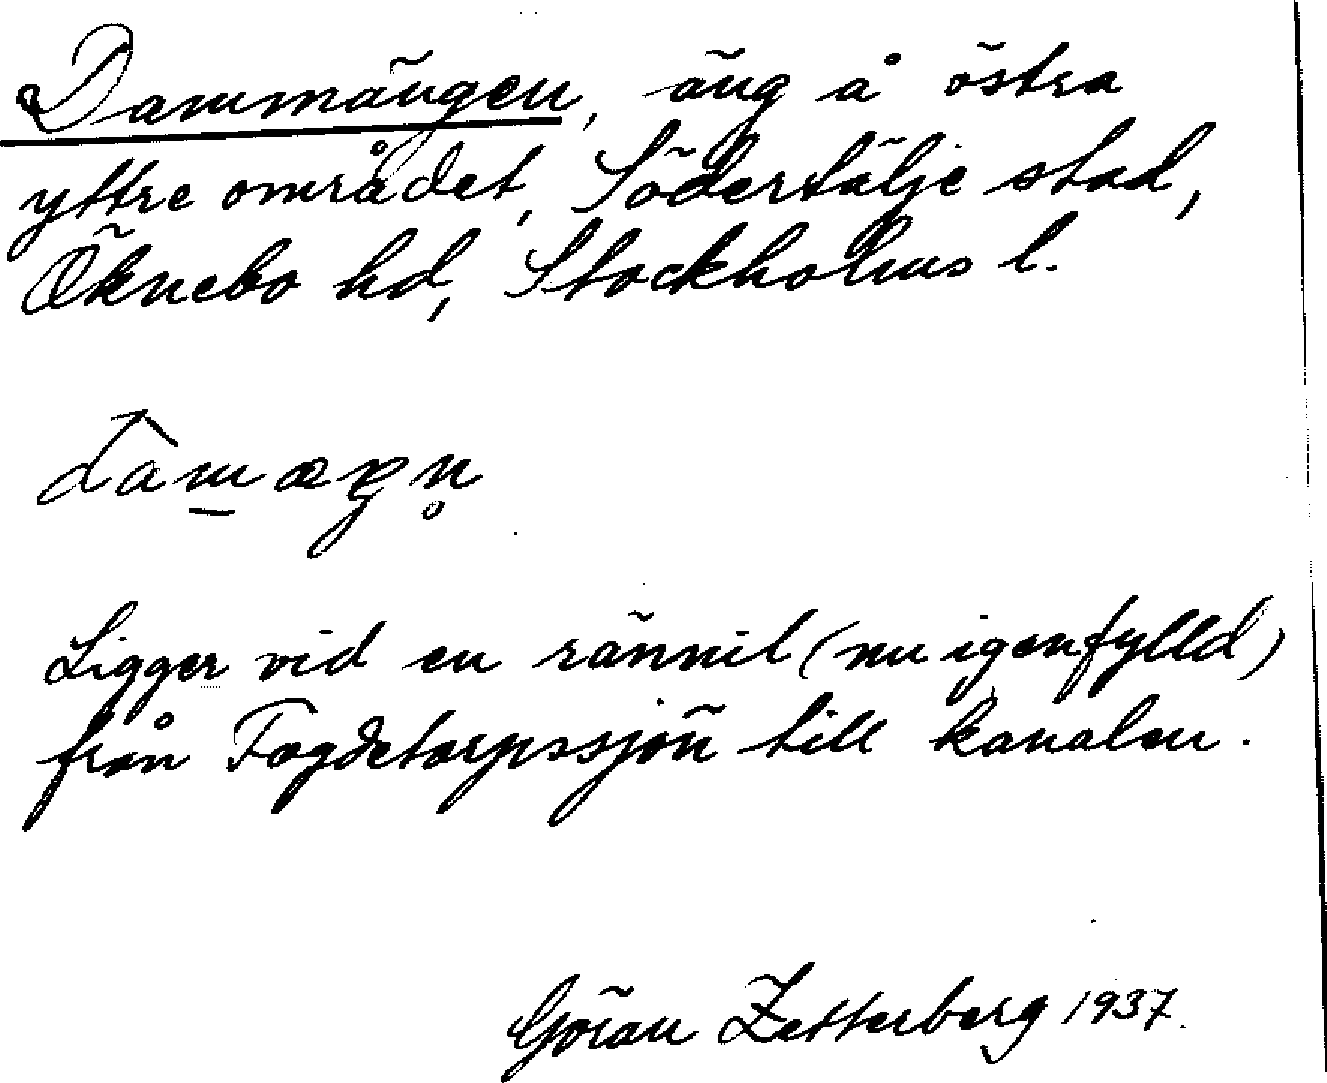 Dammängen, äng å östra
yttre området, Södertälje stad,
Öknebo hd, Stockholms l.
Ligger vid en rännil (nu igenfylld)
från Fogdetorpssjön till kanalen.
Göran Zetterberg 1937.